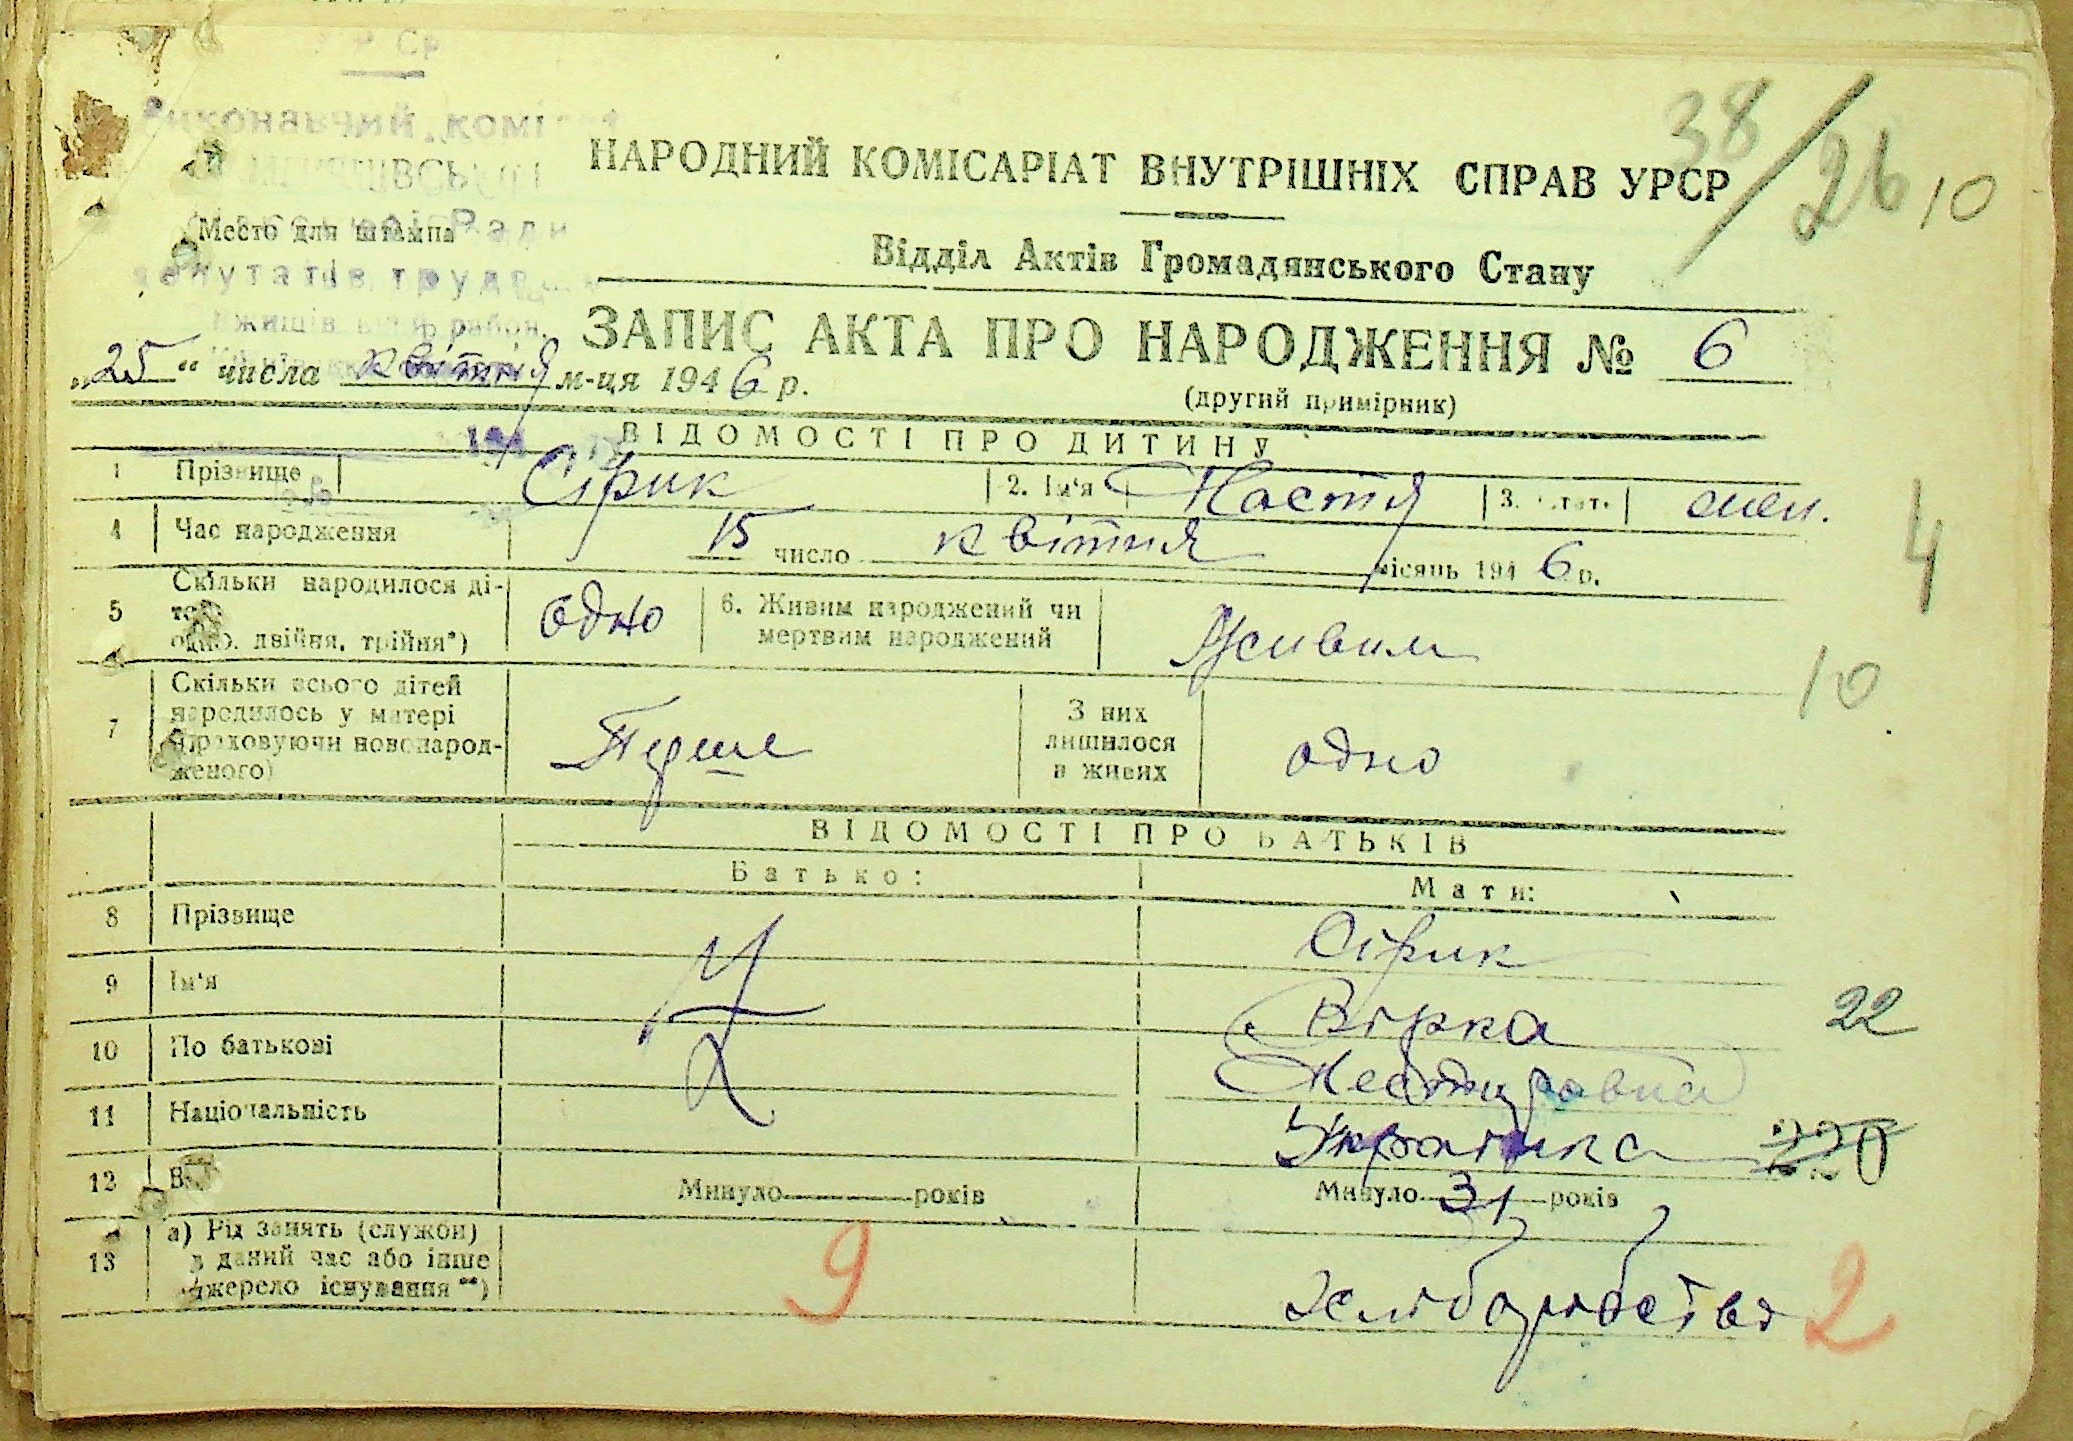 38/26
10
НАРОДНИЙ КОМІСАРІАТ ВНУТРІШНІХ СПРАВ УРСР
Виконавчий коміт
Ради
депутатів труд
Место для штампа
Відділ Актів Громадянського Стану
ЗАПИС АКТА ПРО НАРОДЖЕННЯ № 6
„25“ числа квітня м-ця 1946 р.
(другий примірник)
ВІДОМОСТІ ПРО ДИТИНУ
1 Прізвище Сірик 2. Ім'я Настя 3. Стать жен.
4 Час народження 15 число квітня місяць 1946 р.
4
5 Скільки народилося ді-
тей
одно, двійня, трійня*) одно 6. Живим народжений чи
мертвим народжений Живим
10
7 Скільки всього дітей
народилось у матері
(враховуючи новонарод-
женого) Перше З них
лишилося
в живих одно
ВІДОМОСТІ ПРО БАТЬКІВ
Батько: Мати:
8 Прізвище Сірик
9 Ім'я Вірка 22
10 По батькові Несторовна
11 Національність Українка 220
12 В Минуло років Минуло 31 років
13 а) Рід занять (служби)
в даний час або інше
джерело існування**) 9 Хліборобство 2